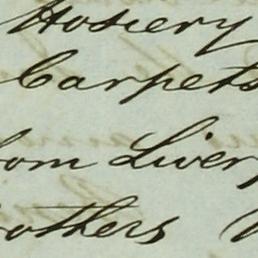 Hosiery
Carpets
om Liver
others